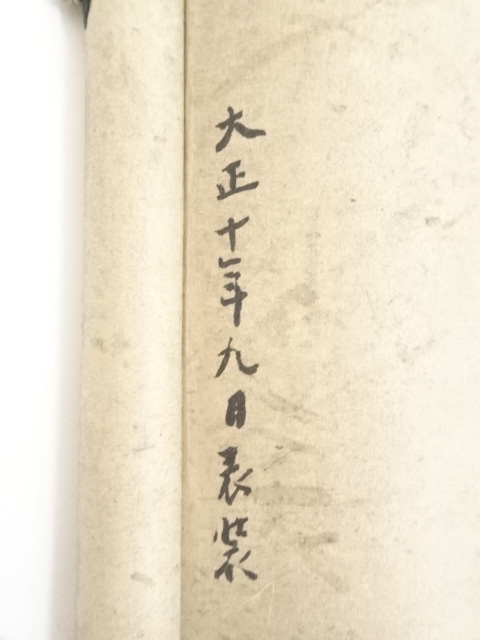 大正十年九月表装